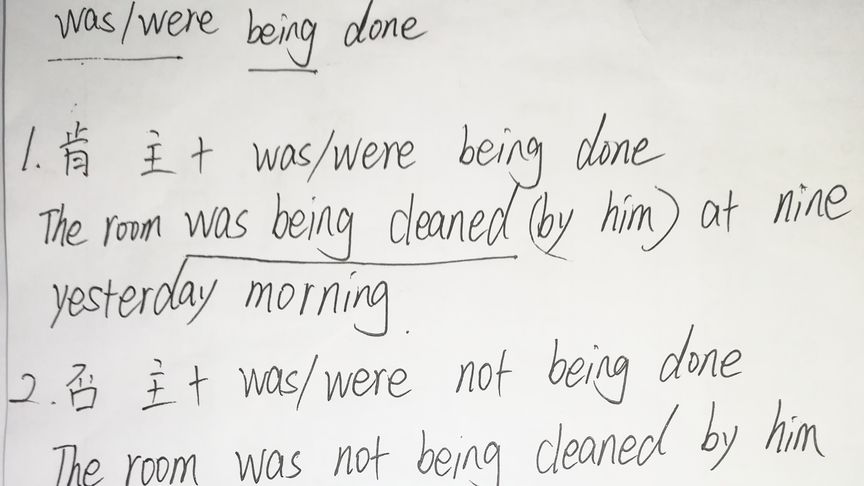 was/were being done
1. 肯 主+ was/were being done
The room was being cleaned (by him) at nine
yesterday morning.
2. 否 主+ was/were not being done
The room was not being cleaned by him